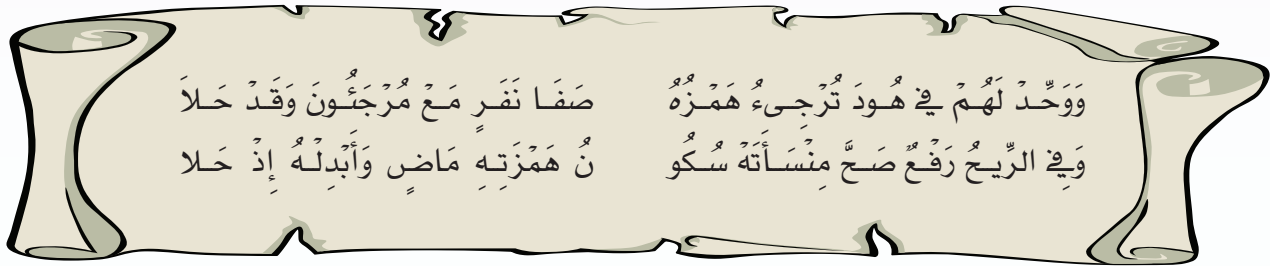 وَوَحِّدْ لَهُمْ فِي هُودَ تُرْجِىءُ هَمْزُهُ صَفَا نَفَرٍ مَعْ مُرْجَئُونَ وَقَدْ حَلاَ
وَفِي الرِّيحُ رَفْعٌ صَحَّ مِنْسَأَتَهْ سُكُو نُ هَمْزَتِهِ مَاضٍ وَأَبْدِلْهُ إِذْ حَلا